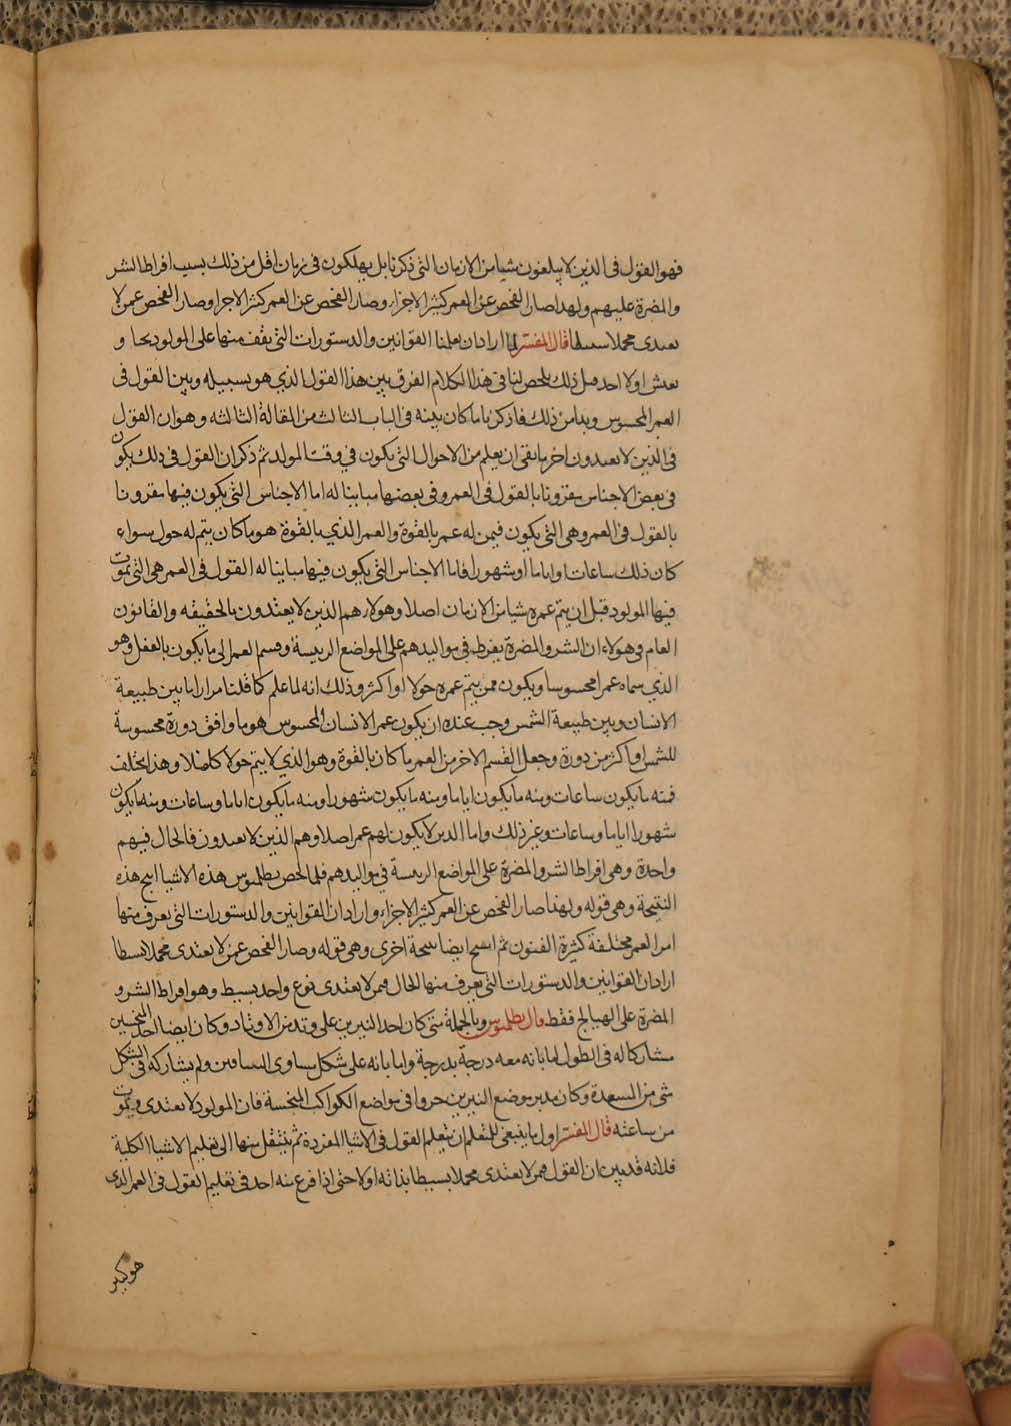 فهو القول فى الذين لا يبلغون شيا من الازمان التى ذكرنا بل يهلكون فى زمان اقل من ذلك بسبب افراط الشر
والمضرة عليهم ولهذا صار الفحص عن العمر كثير الاجزاء وصار الفحص عن العمر كثير الاجزا وصار الفحص عمن لا
يعتدى مجملا بسيطا قال المفسر لما اراد ان يعلمنا القوانين والدستورات التى يقف منها على المولود و
يعش اولا احد قبل ذلك يلخص لنا فى هذا الكلام الفرق بين هذا القول الذي هو بسبيله وبين القول فى
العمر المحسوس وبدا من ذلك فاذكرنا ما كان بينه فى الباب الثالث من المقالة الثالثه وهو ان القول
فى الذين لا يعتدون اخر ما بقى ان يعلم من الاحوال التى يكون في وقت المولد ثم ذكر ان القول فى ذلك يكون
فى بعض الاجناس مقرونا بالقول فى العمر وفى بعضها مباينا له اما الاجناس التى يكون فيها مقرونا
بالقول فى العمر وهى التى يكون فيمن له عمر بالقوة والعمر الذي بالقوة هو ما كان يتم له حول سواء
كان ذلك ساعات او اياما او شهورا فاما الاجناس التى يكون فيها مباينا له القول فى العمر هى التى يموت
فيها المولود قبل ان يتم عمره شيا من الازمان اصلا وهولاء هم الذين لا يعتدون بالحقيقه والقانون
العام فى هولاء ان الشر والمضرة يفرط فى مواليدهم على المواضع الرييسة وقسم العمر الى ما يكون بالفعل وهو
الذي سماه عمرا محسوسا ويكون ممن يتم عمره حولا او اكثر وذلك انه لما علم كما قلنا مرارا ما بين طبيعة
الانسان وبين طبيعة الشمس وجب عنده ان يكون عمر الانسان المحسوس هو ما وافق دورة محسوسة
للشمس او اكثر من دورة وجعل القسم الاخر من العمر ما كان بالقوة وهو الذي لا يتم حولا كاملا وهذا يختلف
فمنه ما يكون ساعات ومنه ما يكون اياما ومنه ما يكون شهورا ومنه ما يكون اياما وساعات ومنه ما يكون
شهورا اياما وساعات وغير ذلك واما الذين لا يكون لهم عمر اصلا وهم الذين لا يعتدون فالحال فيهم
واحدة وهى افراط الشر والمضرة على المواضع الرييسة في مواليدهم فلما لخص بطلميوس هذه الاشيا انتج هذه
النتيجة وهى قوله ولهذا صار الفحص عن العمر كثير الاجزاء واراد ان القوانين والدستورات التى يعرف منها
امر العمر مختلفة كثيرة الفنون ثم انتج ايضا نتيجة اخرى وهى قوله وصار الفحص عمن لا يعتدى مجملا بسيطا
اراد ان القوانين والدستورات التى يعرف منها الحال فيمن لا يعتدى نوع واحد بسيط وهو افراط الشر و
المضرة على الهيالج فقط قال بطلميوس وبالجملة متى كان احد النيرين على وتد من الاوتاد وكان ايضا احد النحسين
مشاركا له فى الطول اما بانه معه درجة بدرجة واما بانه على شكل متساوى الساقين ولم يشاركه فى الشكل
شى من السعدة وكان مدبر موضع النيرين جزوا فى مواضع الكواكب المنحسة فان المولود لا يعتدى ويموت
من ساعته قال المفسر اول ما ينبغى للمتعلم ان يتعلم القول فى الاشيا المفردة ثم ينتقل منها الى تعليم الاشيا الكلية
فلانه قد بين ان القول فيمن لا يعتدى مجملا بسيطا بذاته اولا حتى اذا فرع منه احد فى تعليم القول فى العمر الذى